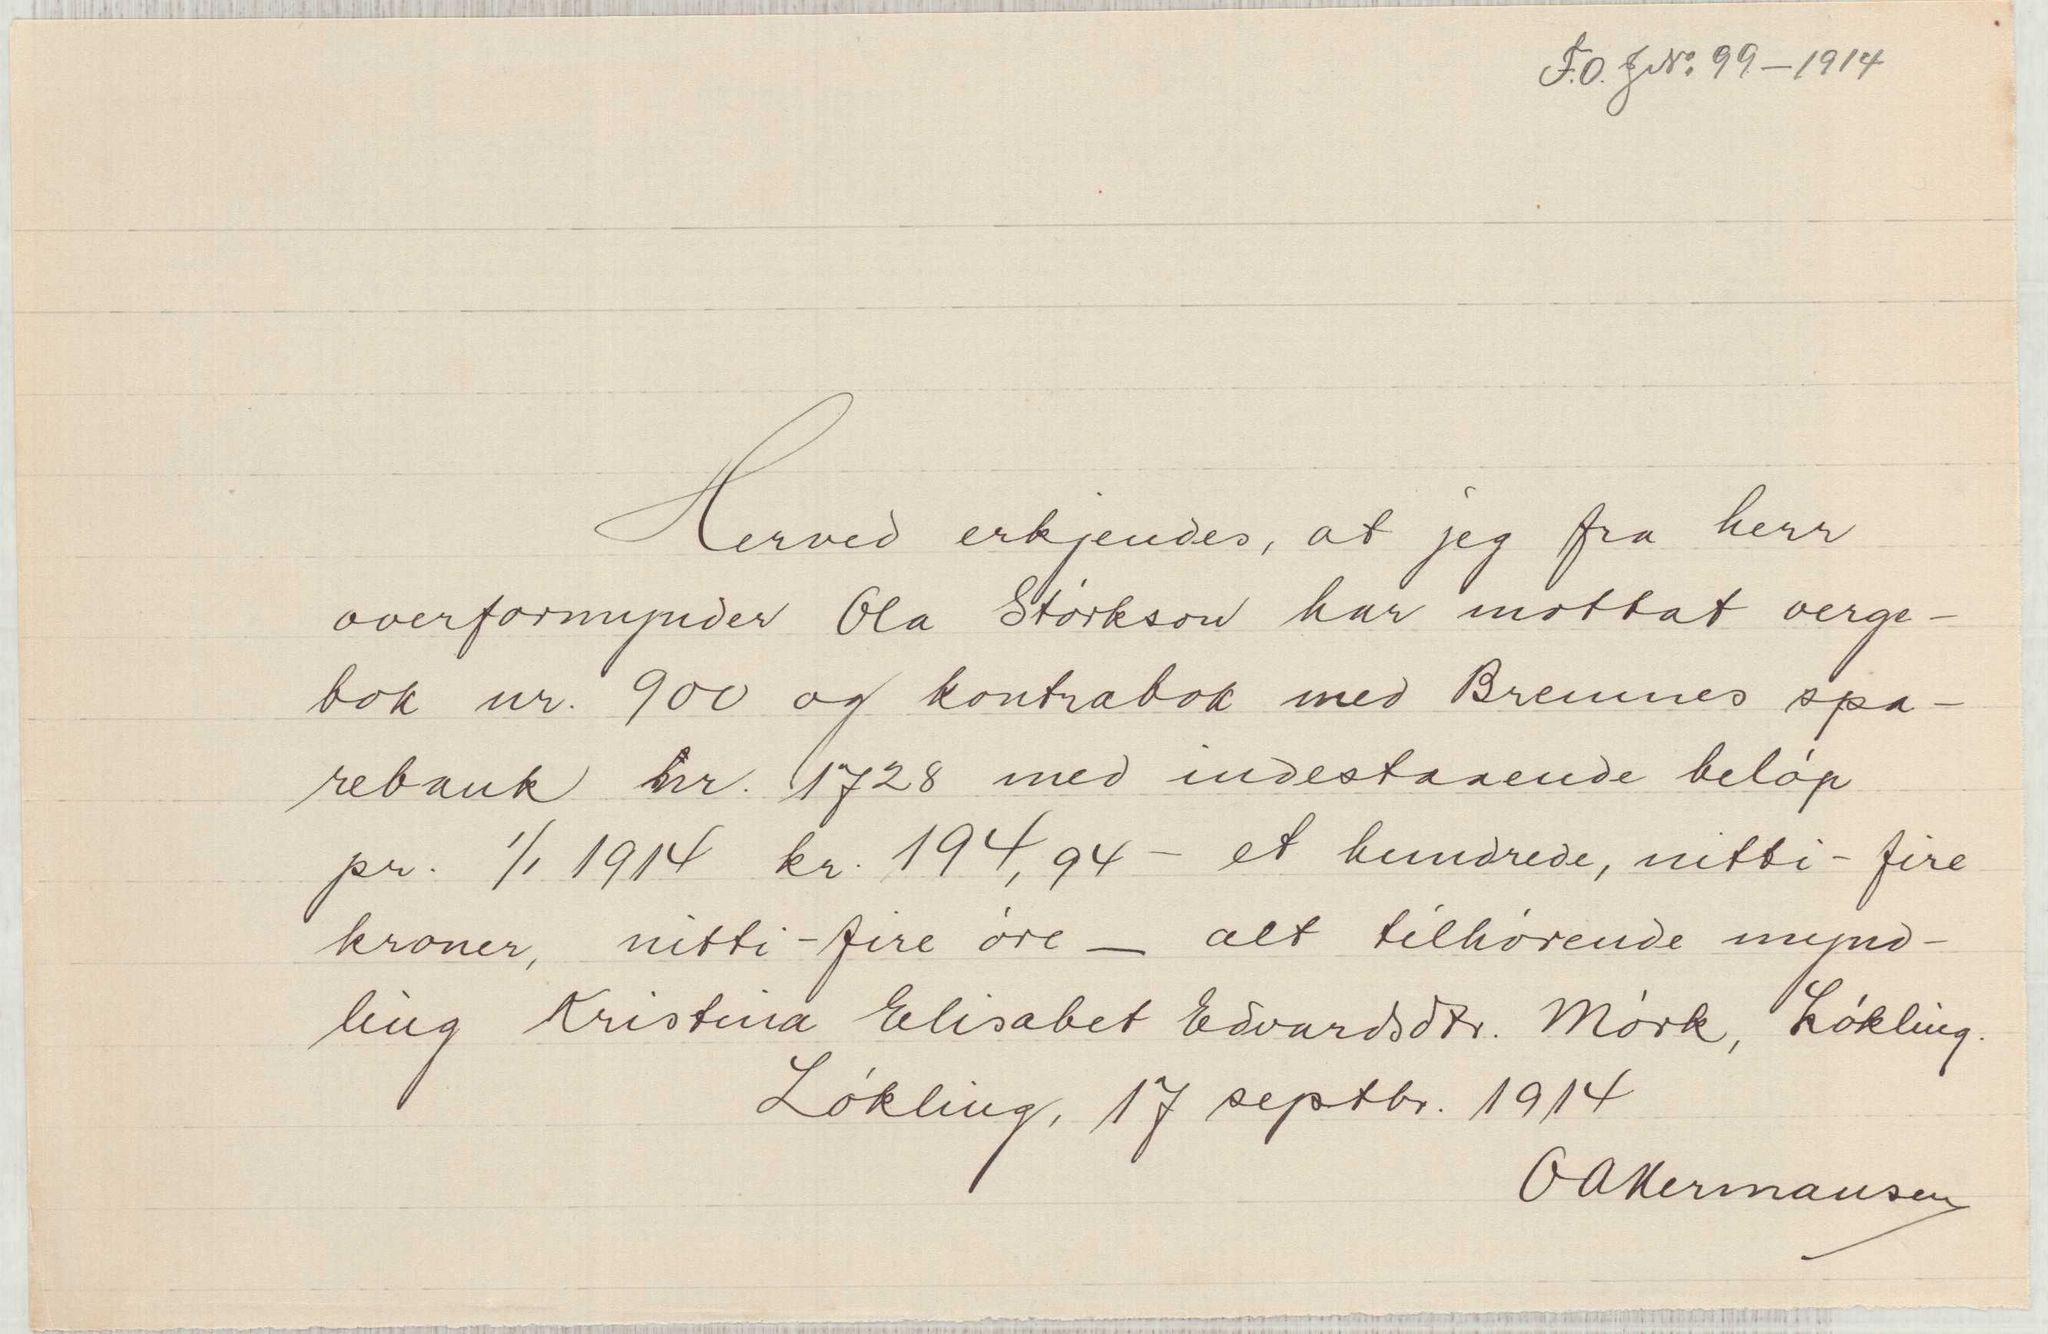 F.O. J.No. 99 – 1914
Herved erkjendes, at jeg fra herr
overformynder Ola Störkson har mottat verge-
bok nr. 900 og kontrabok med Bremnes spa-
rebank nr. 1728 med indestaaende belóp
pr. 1/1 1914 kr. 194,94 – et hundrede, nitti-fire
kroner, nitti-fire óre – alt tilhórende mynd-
ling Kristina Elisabet Edvardsdtr. Mórk, Lókling.
Lókling, 17 septbr. 1914
O A Hermansen